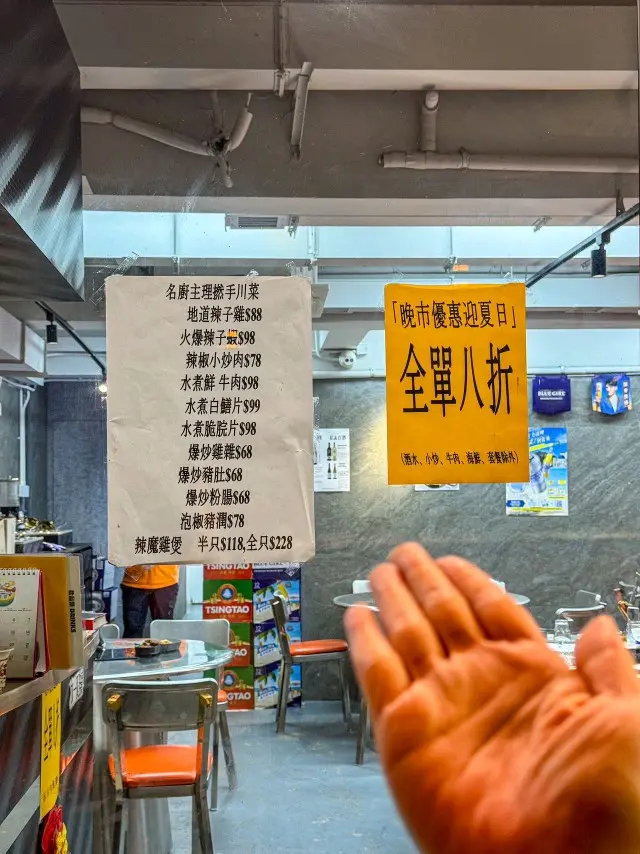 名廚主理撚手川菜
地道辣子雞$88
火爆辣子蝦$98
辣椒小炒肉$78
水煮鮮 牛肉$98
水煮白鱔片$99
水煮脆脘片$98
爆炒雞雜$68
爆炒豬肚$68
爆炒粉腸$68
泡椒豬潤$78
辣魔雞煲 半只$118,全只$228
「晚市優惠迎夏日」
全單八折
(酒水、小炒、牛肉、海鮮、蒸蟹除外)
BLUE GIRL
TSINGTAO
TSINGTAO